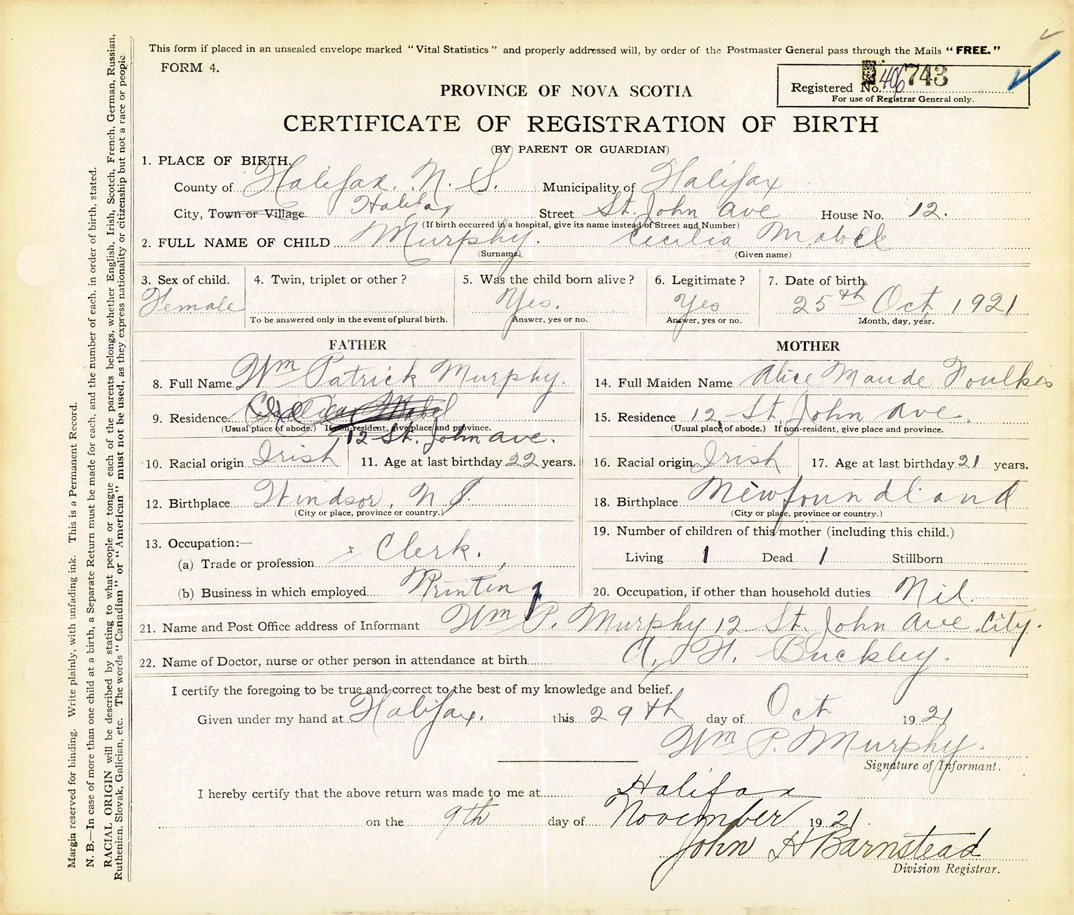 This form if placed in an unsealed envelope marked "Vital Statistics" and properly addressed will, by order of the Postmaster General pass through the Mails "FREE."
FORM 4.
Registered No. 406743
For use of Registrar General only.
PROVINCE OF NOVA SCOTIA
CERTIFICATE OF REGISTRATION OF BIRTH
(BY PARENT OR GUARDIAN)
1. PLACE OF BIRTH.
County of Halifax, N. S. Municipality of Halifax
City, Town or Village Halifax Street St. John Ave House No. 12.
(If birth occurred in a hospital, give its name instead of Street and Number)
2. FULL NAME OF CHILD Murphy. Cecilia Mabel
(Surname) (Given name)
3. Sex of child. 4. Twin, triplet or other? 5. Was the child born alive? 6. Legitimate? 7. Date of birth.
Female Yes. Yes 25th Oct, 1921
To be answered only in the event of plural birth. Answer, yes or no. Answer, yes or no. Month, day, year.
FATHER
8. Full Name Wm Patrick Murphy.
9. Residence
(Usual place of abode.) If non-resident, give place and province.
12 St. John ave.
10. Racial origin Irish 11. Age at last birthday 22 years.
12. Birthplace Windsor, N. S.
(City or place, province or country.)
13. Occupation:—
(a) Trade or profession Clerk.
(b) Business in which employed Printing
MOTHER
14. Full Maiden Name Alice Maude Foulkes
15. Residence 12 St. John ave.
(Usual place of abode.) If non-resident, give place and province.
16. Racial origin Irish 17. Age at last birthday 21 years.
18. Birthplace Newfoundland
(City or place, province or country.)
19. Number of children of this mother (including this child.)
Living 1 Dead 1 Stillborn
20. Occupation, if other than household duties Nil.
21. Name and Post Office address of Informant Wm P. Murphy 12 St. John Ave. City.
22. Name of Doctor, nurse or other person in attendance at birth A. H. Buckley.
I certify the foregoing to be true and correct to the best of my knowledge and belief.
Given under my hand at Halifax. this 29th day of Oct 1921
Wm P. Murphy.
Signature of Informant.
I hereby certify that the above return was made to me at Halifax
on the 9th day of November 1921
John H Barnstead
Division Registrar.
Margin reserved for binding. Write plainly, with unfading ink. This is a Permanent Record.
N. B.—In case of more than one child at a birth, a Separate Return must be made for each, and the number of each, in order of birth, stated.
RACIAL ORIGIN will be described by stating to what people or tongue each of the parents belongs, whether English, Irish, Scotch, French, German, Russian,
Ruthenian, Slovak, Galician, etc. The words "Canadian" or "American" must not be used, as they express nationality or citizenship but not a race or people